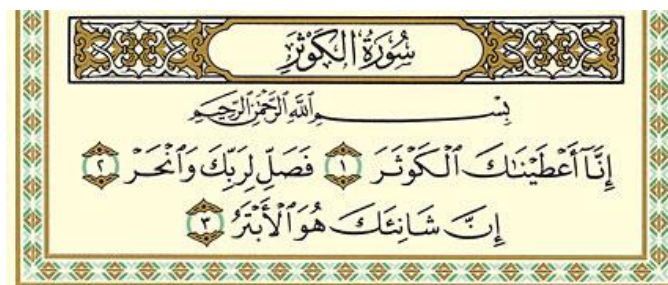 سُورَةُ الكَوۡثَرِ
بِسۡمِ ٱللَّهِ ٱلرَّحۡمَٰنِ ٱلرَّحِيمِ
إِنَّآ أَعۡطَيۡنَٰكَ ٱلۡكَوۡثَرَ ١ فَصَلِّ لِرَبِّكَ وَٱنۡحَرۡ ٢
إِنَّ شَانِئَكَ هُوَ ٱلۡأَبۡتَرُ ٣